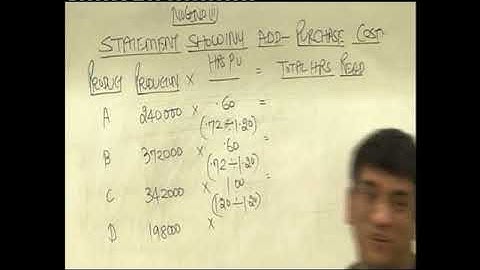 STATEMENT SHOWING ADD- PURCHASE COST
PRODUCT PRODUCTION × HRS PU = TOTAL HRS READ
A 240000 × .60 =
(.72 ÷ 1.20)
B 372000 × .60 =
(.72 ÷ 1.20)
C 342000 × 1.00 =
(1.20 ÷ 1.20)
D 198000 ×